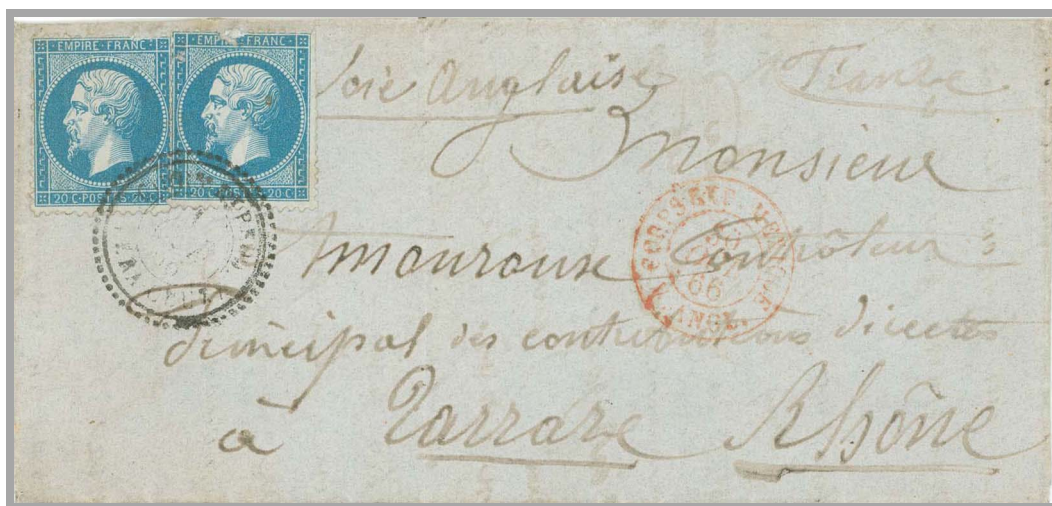 EMPIRE FRANC EMPIRE FRANC
20 C POSTES 20 C 20 C 20 C
Voie Anglaise France
Monsieur
Amouroux Contrôleur
principal des contributions directes
à Tarrare Rhône
66